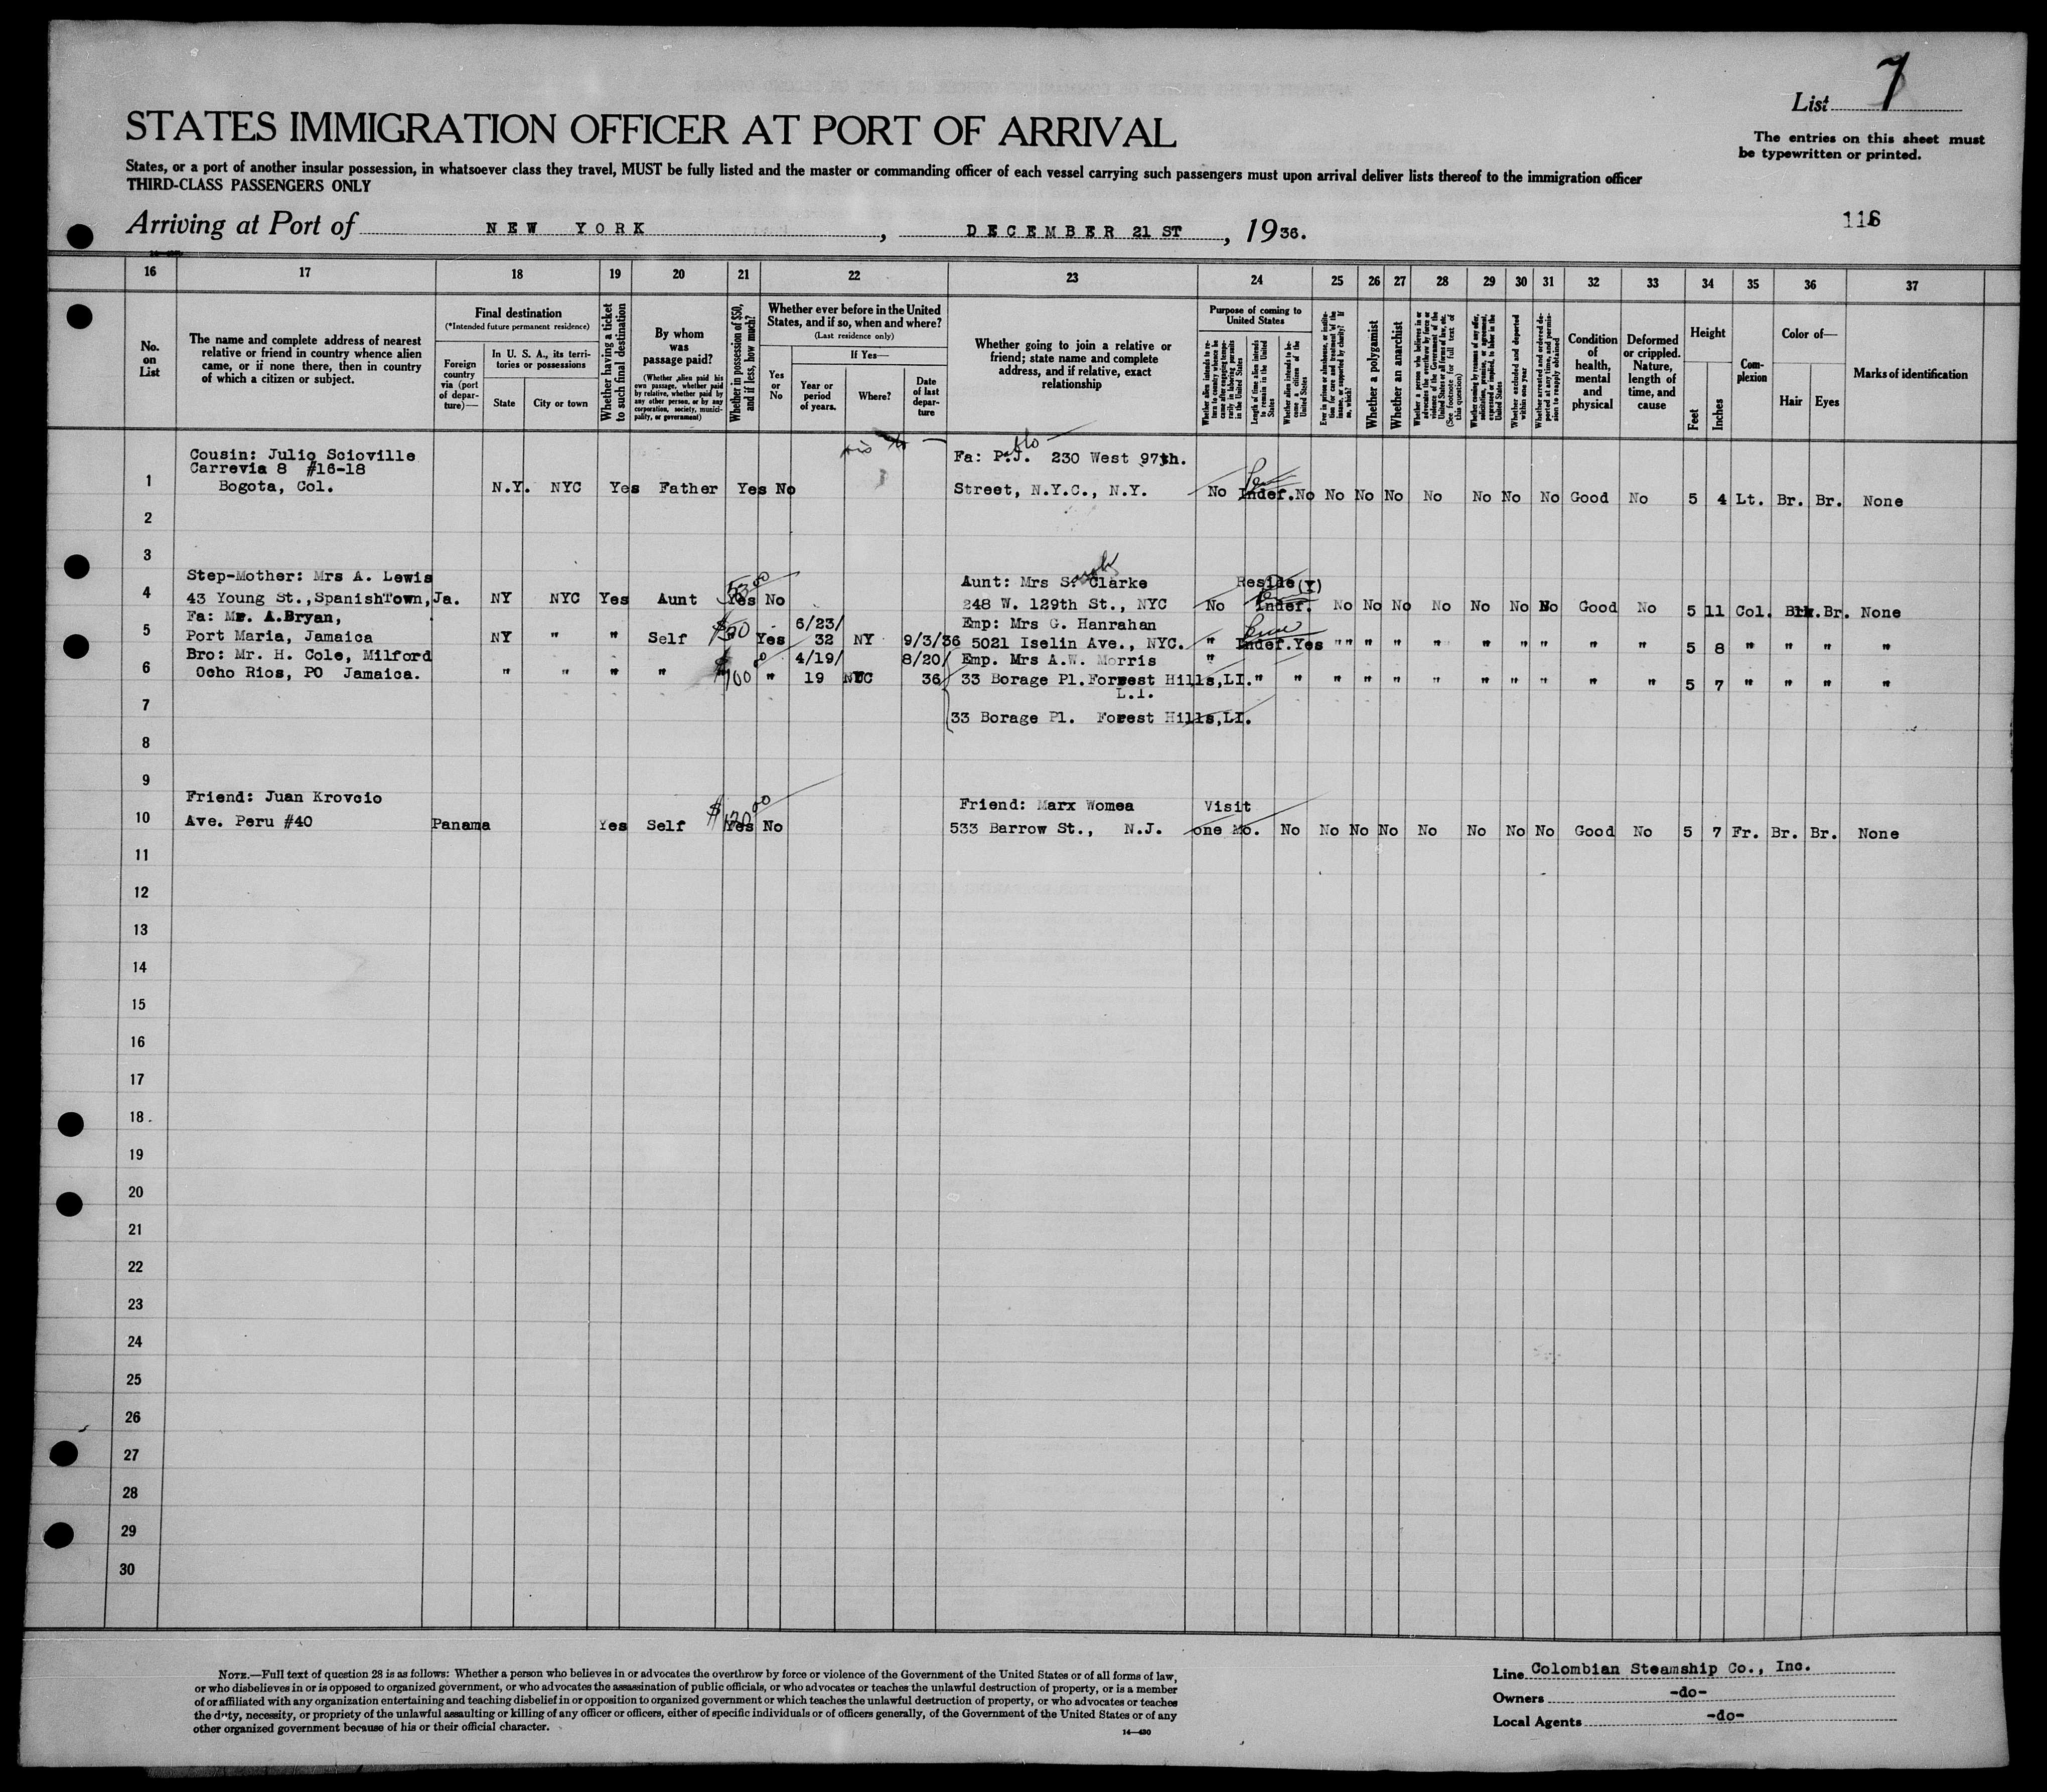 List 7
STATES IMMIGRATION OFFICER AT PORT OF ARRIVAL
The entries on this sheet must
be typewritten or printed.
States, or a port of another insular possession, in whatsoever class they travel, MUST be fully listed and the master or commanding officer of each vessel carrying such passengers must upon arrival deliver lists thereof to the immigration officer
THIRD-CLASS PASSENGERS ONLY
Arriving at Port of NEW YORK, DECEMBER 21 ST, 1936.
16 17 18 19 20 21 22 23 24 25 26 27 28 29 30 31 32 33 34 35 36 37
No.
on
List
The name and complete address of nearest
relative or friend in country whence alien
came, or if none there, then in country
of which a citizen or subject.
Final destination
(*Intended future permanent residence)
Foreign
country
via (port
of depar-
ture)—
In U. S. A., its terri-
tories or possessions
State
City or town
Whether having a ticket
to such final destination
By whom
was
passage paid?
(Whether alien paid his
own passage, whether paid
by relative, whether paid by
any other person, or by any
corporation, society, munici-
pality, or government)
Whether in possession of $50,
and if less, how much?
Whether ever before in the United
States, and if so, when and where?
(Last residence only)
If Yes—
Yes
or
No
Year or
period
of years.
Where?
Date
of last
depar-
ture
Whether going to join a relative or
friend; state name and complete
address, and if relative, exact
relationship
Purpose of coming to
United States
Whether alien intends to re-
turn to country whence he
came after engaging tempo-
rarily in laboring pursuits
in the United States
Length of time alien intends
to remain in the United
States
Whether alien intends to be-
come a citizen of the
United States
Ever in prison or almshouse, or institu-
tion for care and treatment of the
insane, or supported by charity? If
so, which?
Whether a polygamist
Whether an anarchist
Whether a person who believes in or
advocates the overthrow by force or
violence of the Government of the
United States or all forms of law, etc.
(See footnote for full text of
this question)
Whether coming by reason of any offer,
solicitation, promise, or agreement,
expressed or implied, to labor in the
United States
Whether excluded and deported
within one year
Whether arrested and ordered de-
ported at any time, and permis-
sion to reapply obtained
Condition
of
health,
mental
and
physical
Deformed
or crippled.
Nature,
length of
time, and
cause
Height
Feet
Inches
Com-
plexion
Color of—
Hair
Eyes
Marks of identification
Cousin: Julio Scioville
Carrevia 8 #16-18 Fa: P.J. 230 West 97th.
1 Bogota, Col. N.Y. NYC Yes Father Yes No Street, N.Y.C., N.Y. No Indef. No No No No No No No No Good No 5 4 Lt. Br. Br. None
2
3
Step-Mother: Mrs A. Lewis Aunt: Mrs S. Clarke Reside (Y)
4 43 Young St., SpanishTown, Ja. NY NYC Yes Aunt Yes No 248 W. 129th St., NYC No Indef. No No No No No No No Good No 5 11 Col. Blk. Br. None
Fa: Mr. A.Bryan, 6/23/ Emp: Mrs G. Hanrahan
5 Port Maria, Jamaica NY " " Self $50 Yes 32 NY 9/3/36 5021 Iselin Ave., NYC. " Indef. Yes " " " " " " " " " 5 8 " " " "
Bro: Mr. H. Cole, Milford 4/19/ 8/20/ Emp. Mrs A.W. Morris "
6 Ocho Rios, PO Jamaica. " " " " $100 " 19 NYC 36 33 Borage Pl. Forrest Hills, LI. " " " " " " " " " " " 5 7 " " " "
L.I.
7 33 Borage Pl. Forest Hills, LI.
8
9
Friend: Juan Krovcio Friend: Marx Womea Visit
10 Ave. Peru #40 Panama Yes Self $120 Yes No 533 Barrow St., N.J. one Mo. No No No No No No No No Good No 5 7 Fr. Br. Br. None
11
12
13
14
15
16
17
18
19
20
21
22
23
24
25
26
27
28
29
30
NOTE.—Full text of question 28 is as follows: Whether a person who believes in or advocates the overthrow by force or violence of the Government of the United States or of all forms of law,
or who disbelieves in or is opposed to organized government, or who advocates the assassination of public officials, or who advocates or teaches the unlawful destruction of property, or is a member
of or affiliated with any organization entertaining and teaching disbelief in or opposition to organized government or which teaches the unlawful destruction of property, or who advocates or teaches
the duty, necessity, or propriety of the unlawful assaulting or killing of any officer or officers, either of specific individuals or of officers generally, of the Government of the United States or of any
other organized government because of his or their official character.
14—430
Line Colombian Steamship Co., Inc.
Owners -do-
Local Agents -do-